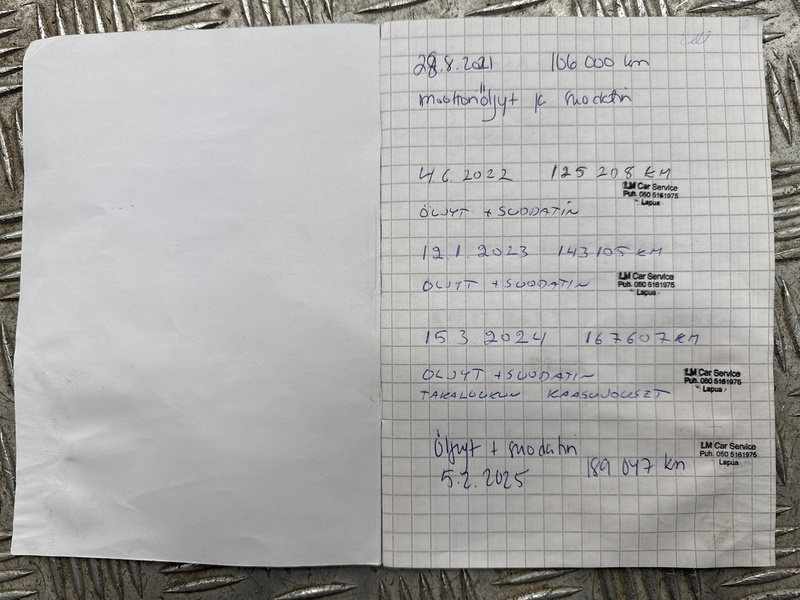 28.8.2021 106 000 km
moottoriöljyt ja suodatin
4.6.2022 125 208 KM
LM Car Service
Puh. 050 5161975
Lapua
ÖLJYT + SUODATIN
12.1.2023 143105 KM
ÖLJYT + SUODATIN
LM Car Service
Puh. 050 5161975
Lapua
15.3.2024 167607 KM
ÖLJYT + SUODATIN
LM Car Service
Puh. 050 5161975
Lapua
TAKALUUKUN KAASUJOUSET
Öljyt + suodatin
LM Car Service
Puh. 050 5161975
Lapua
5.2.2025 189 047 km